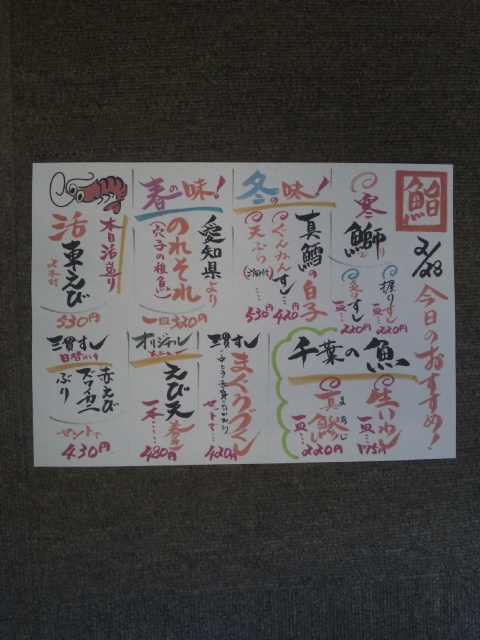 鮨
2/28
今日のおすすめ！
寒鰤
握りずし
一皿…220円
炙りずし
一皿…220円
冬の味！
真鱈の白子
ぐんかんずし
…420円
天ぷら
…530円
春の味！
愛知県より
のれそれ
(穴子の稚魚)
一皿320円
本日活造り
活車えび
一尾付
530円
千葉の魚
生いわし
一皿…175円
真鯵
まあじ
一皿…220円
三貫ずし
まぐろづくし
セットで…420円
オリジナル
えび天巻
一本…480円
三貫ずし
日替わり
赤えび
ズワイガニ
ぶり
セットで
430円